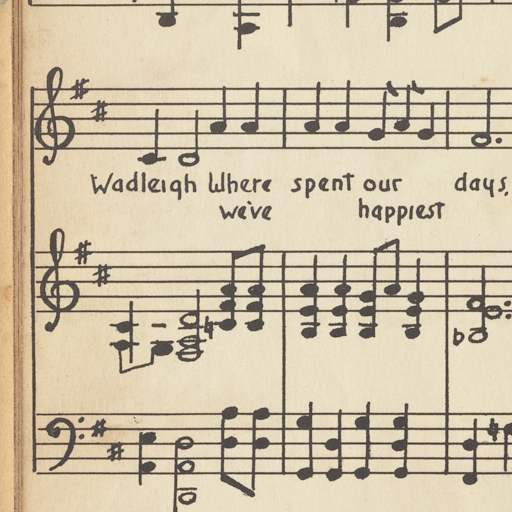 Wadleigh Where spent our days,
we've happiest